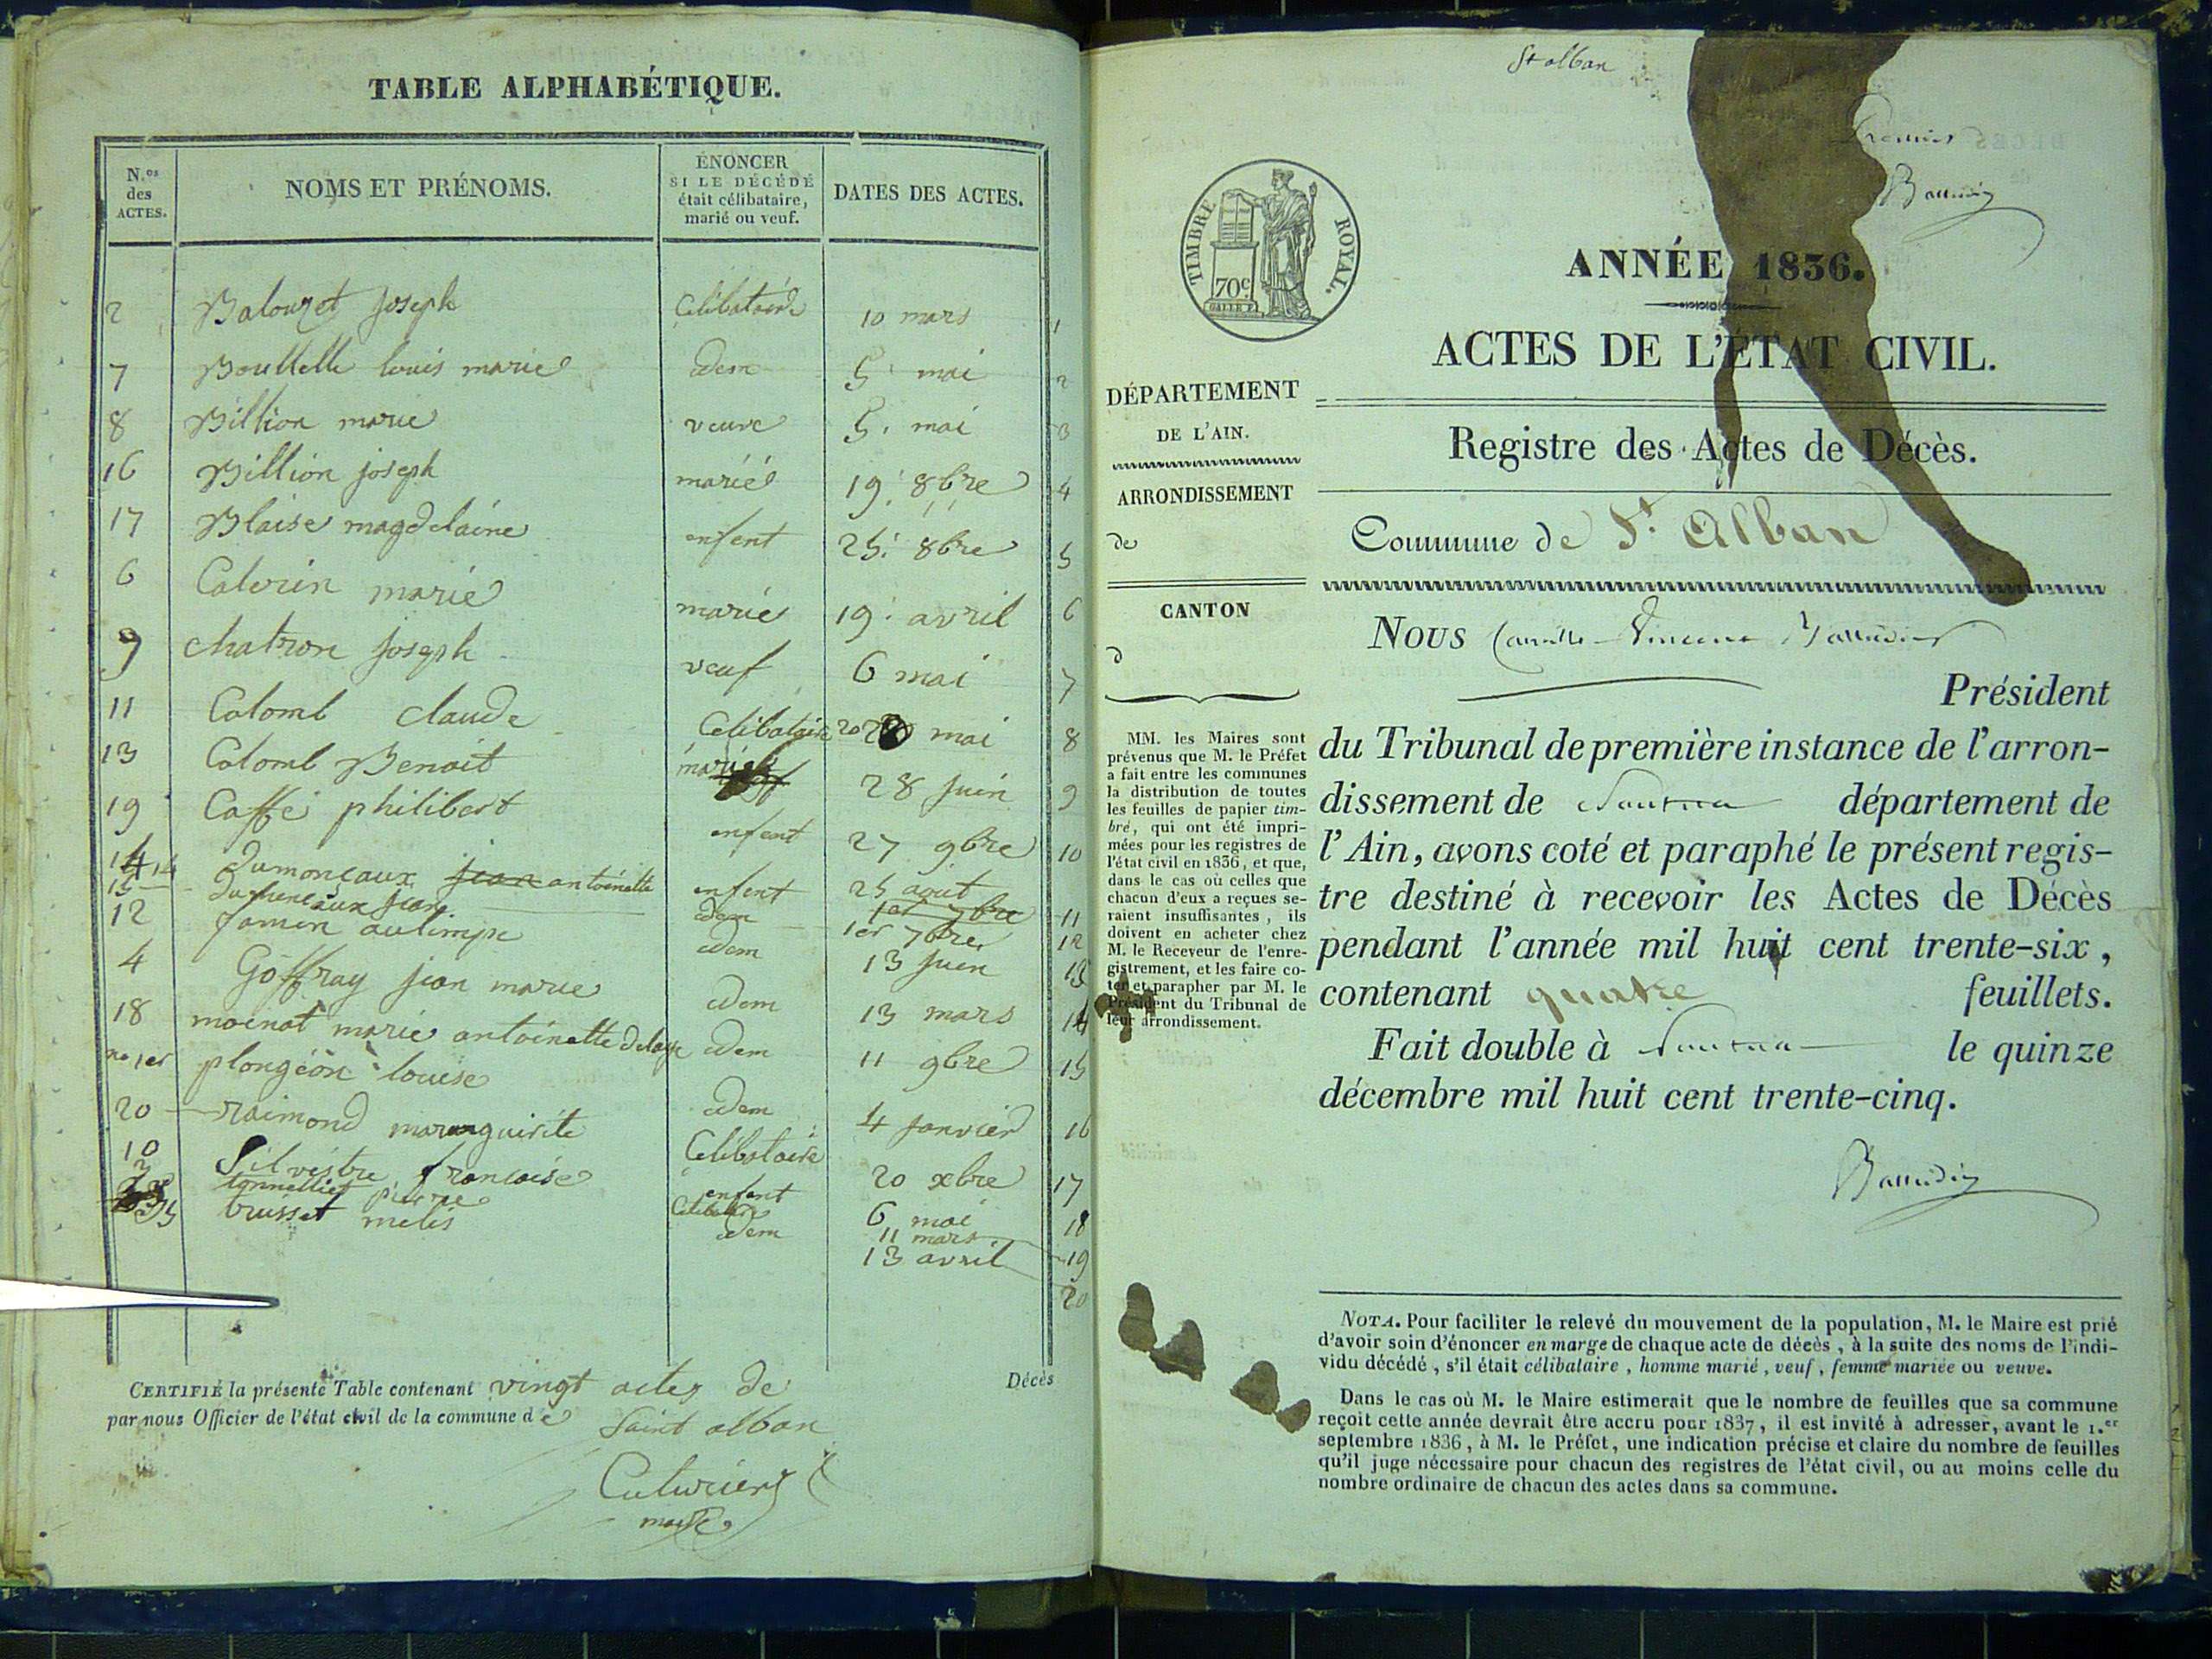 TABLE ALPHABÉTIQUE.
N.os des ACTES.
NOMS ET PRÉNOMS.
ÉNONCER
SI LE DÉCÉDÉ
était célibataire,
marié ou veuf.
DATES DES ACTES.
2 Balouzet joseph Celibataire 10 mars 1
7 Boullelle louis marie idem 5 mai 2
8 Billion marie veuve 5. mai 3
16 Billion joseph marié 19 8bre 4
17 Blaise magdelaine enfent 25 8bre 5
6 Caterin marie mariée 19 avril 6
9 chatron joseph veuf 6 mai 7
11 Colomb claude Celibataire 20 mai 8
13 Colomb Benoit marié 28 juin 9
19 Caffé philibert enfent 27 9bre 10
14 Dumonceaux jean antoinette enfent 25 aout 11
15 Dumonceaux jean idem 1er 7bre 12
12 famin aulimpe idem 13 juin 13
4 Goffray jean marie idem 13 mars 14
18 moinat marie antoinette delaye idem 11 9bre 15
no 1er plongeon louise idem 4 janvier 16
20 raimond marguirite Celibataire 20 xbre 17
10 Silvestre francoise enfent 6 mai 18
3 tonnellier pierre Celibataire 11 mars 19
5 trusset melis idem 13 avril 20
CERTIFIÉ la présente Table contenant vingt actes de Décès
par nous Officier de l'état civil de la commune de Saint alban
maire
St alban
Premier
TIMBRE ROYAL.
70c
ANNÉE 1836.
ACTES DE L'ÉTAT CIVIL.
Registre des Actes de Décès.
Commune de St. Alban
DÉPARTEMENT
DE L'AIN.
ARRONDISSEMENT
de
CANTON
d
MM. les Maires sont
prévenus que M. le Préfet
a fait entre les communes
la distribution de toutes
les feuilles de papier tim-
bré, qui ont été impri-
mées pour les registres de
l'état civil en 1836, et que,
dans le cas où celles que
chacun d'eux a reçues se-
raient insuffisantes, ils
doivent en acheter chez
M. le Receveur de l'enre-
gistrement, et les faire co-
ter et parapher par M. le
Président du Tribunal de
leur arrondissement.
Nous Camille Vincent
Président
du Tribunal de première instance de l'arron-
dissement de Nantua département de
l'Ain, avons coté et paraphé le présent regis-
tre destiné à recevoir les Actes de Décès
pendant l'année mil huit cent trente-six,
contenant quatre feuillets.
Fait double à Nantua le quinze
décembre mil huit cent trente-cinq.
NOTA. Pour faciliter le relevé du mouvement de la population, M. le Maire est prié
d'avoir soin d'énoncer en marge de chaque acte de décès, à la suite des noms de l'indi-
vidu décédé, s'il était célibataire, homme marié, veuf, femme mariée ou veuve.
Dans le cas où M. le Maire estimerait que le nombre de feuilles que sa commune
reçoit cette année devrait être accru pour 1837, il est invité à adresser, avant le 1.er
septembre 1836, à M. le Préfet, une indication précise et claire du nombre de feuilles
qu'il juge nécessaire pour chacun des registres de l'état civil, ou au moins celle du
nombre ordinaire de chacun des actes dans sa commune.